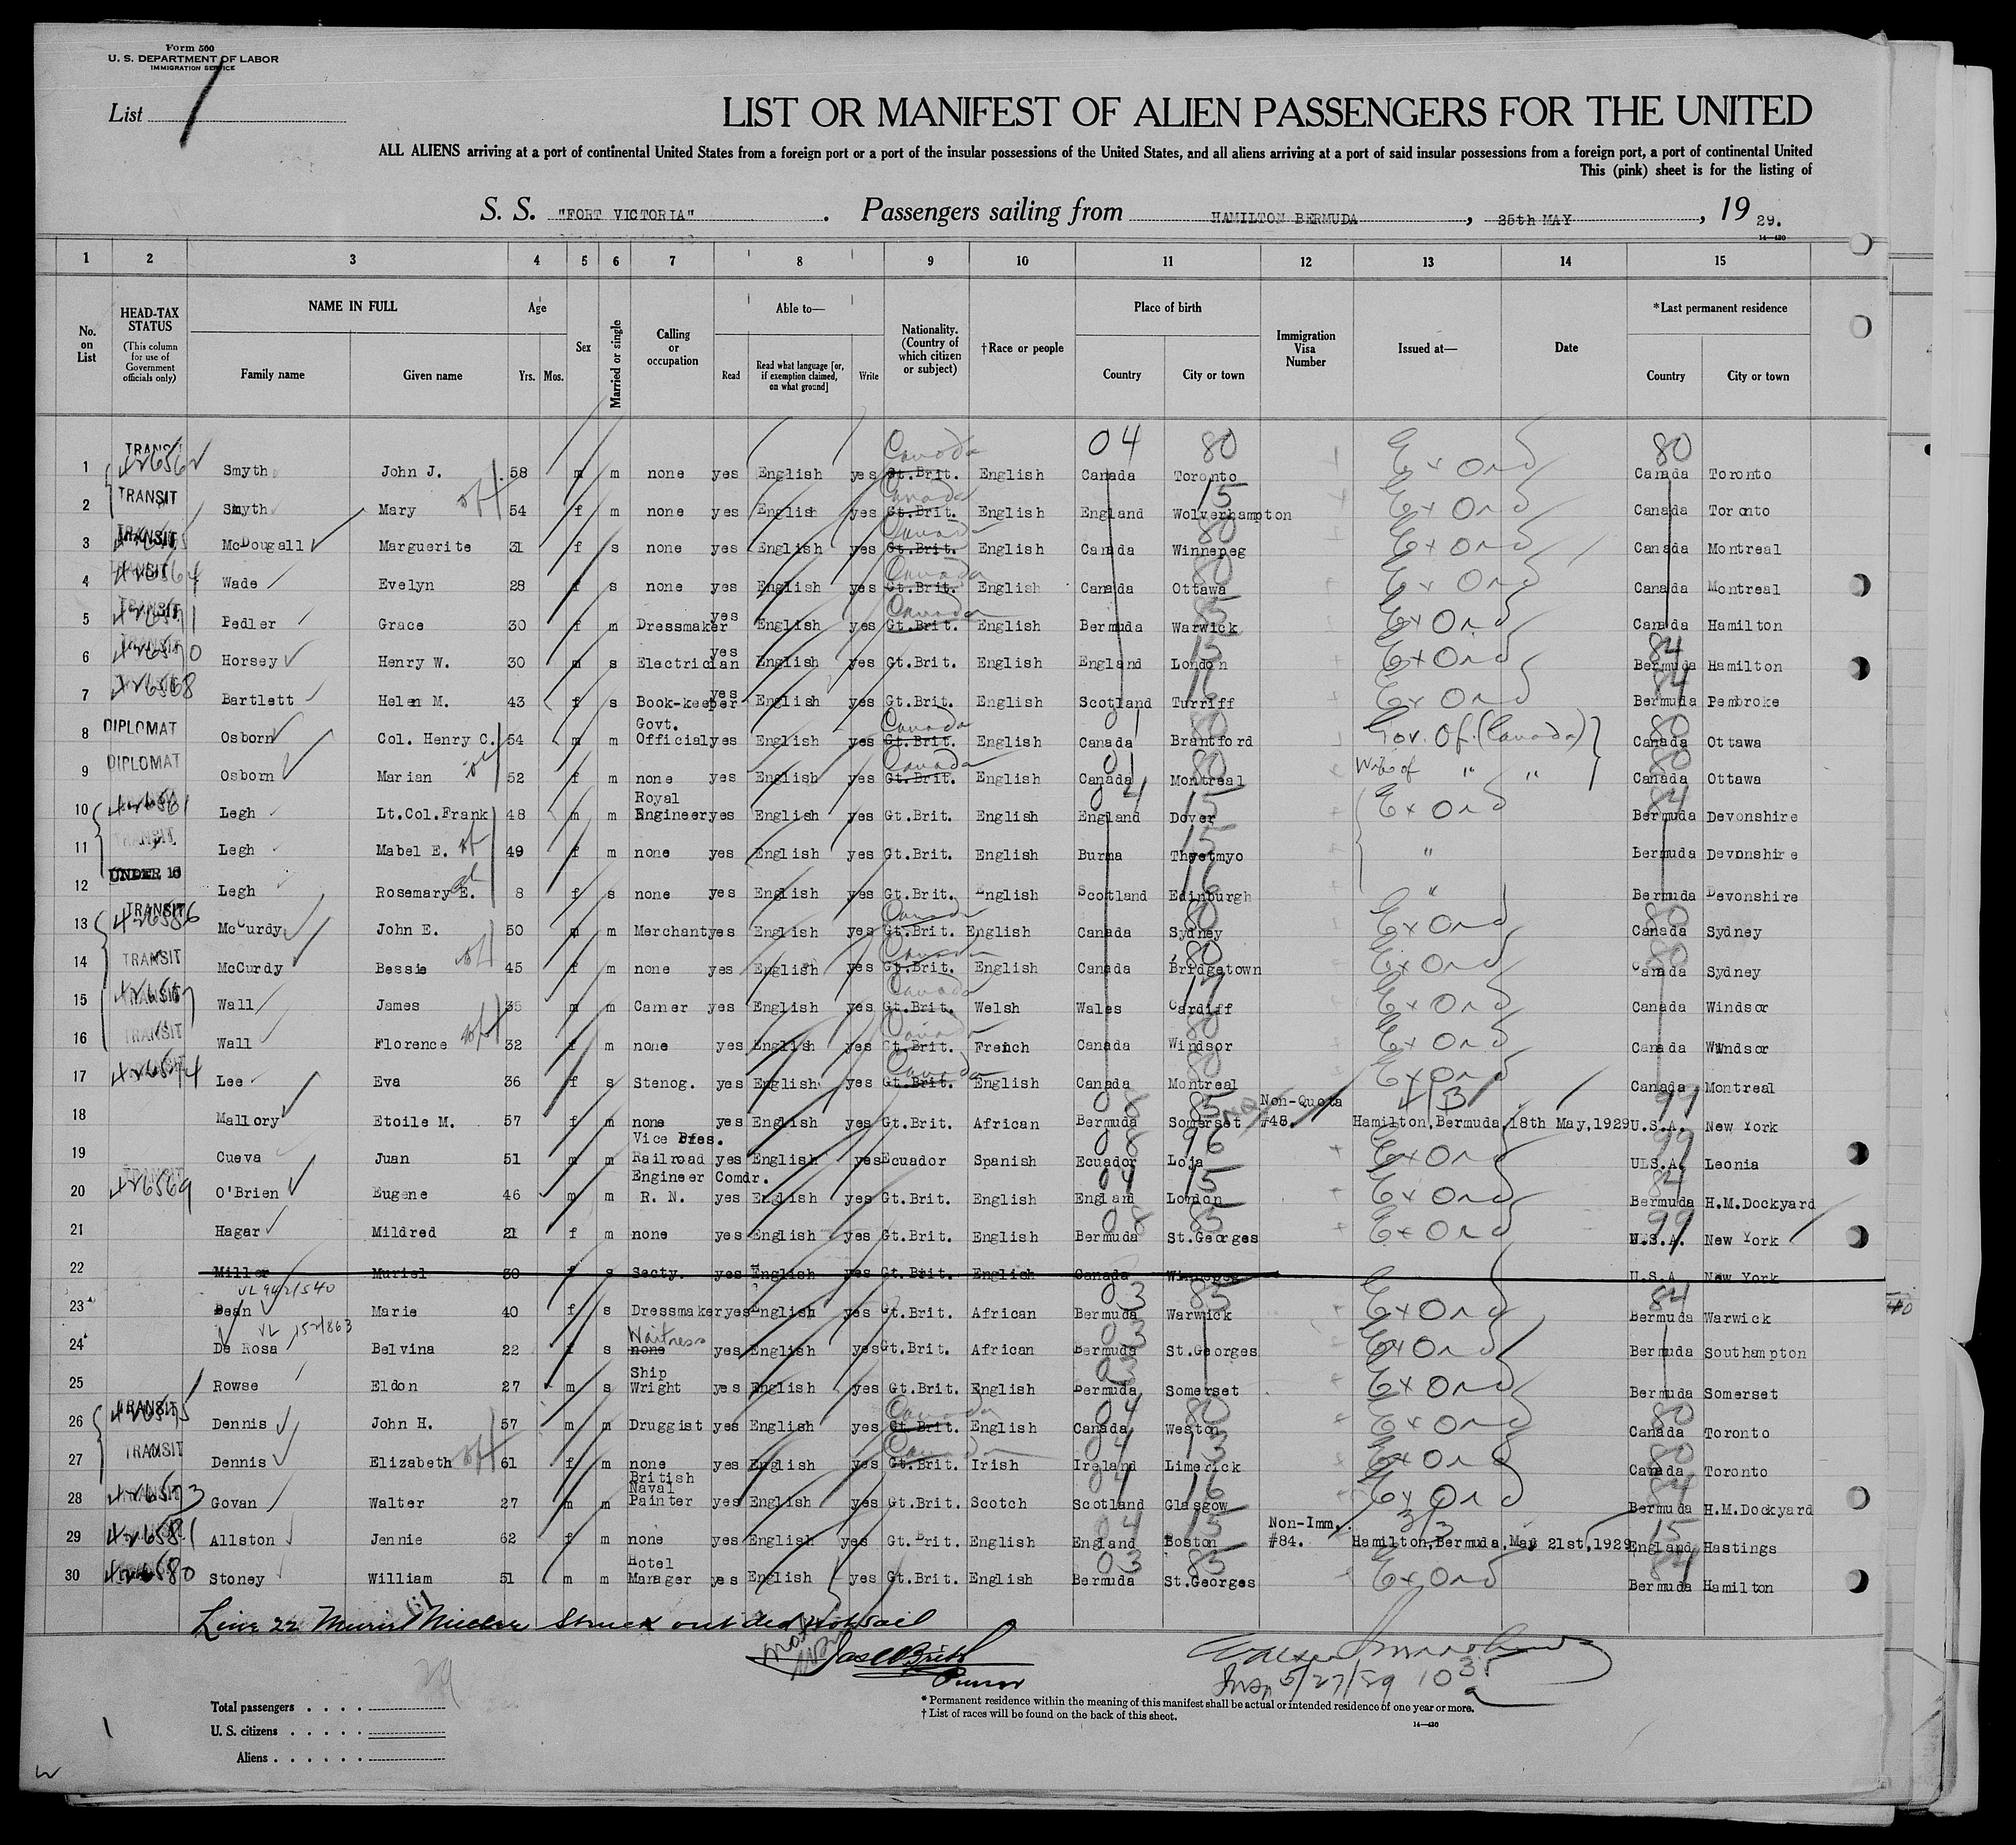 Form 500
U. S. DEPARTMENT OF LABOR
IMMIGRATION SERVICE
List 1
LIST OR MANIFEST OF ALIEN PASSENGERS FOR THE UNITED
ALL ALIENS arriving at a port of continental United States from a foreign port or a port of the insular possessions of the United States, and all aliens arriving at a port of said insular possessions from a foreign port, a port of continental United
This (pink) sheet is for the listing of
S. S. "FORT VICTORIA" . Passengers sailing from HAMILTON BERMUDA , 25th MAY , 19 29.
14—420
1 2 3 4 5 6 7 8 9 10 11 12 13 14 15
No. on List
HEAD-TAX STATUS (This column for use of Government officials only)
NAME IN FULL Family name Given name
Age Yrs. Mos.
Sex
Married or single
Calling or occupation
Able to— Read Read what language [or, if exemption claimed, on what ground] Write
Nationality. (Country of which citizen or subject)
†Race or people
Place of birth Country City or town
Immigration Visa Number
Issued at—
Date
*Last permanent residence Country City or town
1 TRANSIT Smyth John J. 58 m m none yes English yes Gt.Brit. Canada English Canada Toronto 04 80 Ex Ord 80 Canada Toronto
2 TRANSIT Smyth Mary 54 f m none yes English yes Gt.Brit. Canada English England Wolverhampton 15 Ex Ord Canada Toronto
3 TRANSIT McDougall Marguerite 31 f s none yes English yes Gt.Brit. Canada English Canada Winnepeg 80 Ex Ord Canada Montreal
4 TRANSIT Wade Evelyn 28 f s none yes English yes Gt.Brit. Canada English Canada Ottawa 80 Ex Ord Canada Montreal
5 TRANSIT Pedler Grace 30 f m Dressmaker yes English yes Gt.Brit. Canada English Bermuda Warwick 85 Ex Ord Canada Hamilton
6 TRANSIT Horsey Henry W. 30 m s Electrician yes English yes Gt.Brit. English England London 15 Ex Ord 84 Bermuda Hamilton
7 Bartlett Helen M. 43 f s Book-keeper yes English yes Gt.Brit. English Scotland Turriff 16 Ex Ord 84 Bermuda Pembroke
8 DIPLOMAT Osborn Col. Henry C. 54 m m Govt. Official yes English yes Gt.Brit. Canada English Canada Brantford 01 80 Gov. Of. (Canada) 80 Canada Ottawa
9 DIPLOMAT Osborn Marian 52 f m none yes English yes Gt.Brit. Canada English Canada Montreal 01 80 Wife of " " 80 Canada Ottawa
10 Legh Lt.Col.Frank 48 m m Royal Engineer yes English yes Gt.Brit. English England Dover 04 15 Ex Ord 84 Bermuda Devonshire
11 TRANSIT Legh Mabel E. 49 f m none yes English yes Gt.Brit. English Burma Thyetmyo 15 " Bermuda Devonshire
12 UNDER 16 Legh Rosemary E. 8 f s none yes English yes Gt.Brit. English Scotland Edinburgh 16 " Bermuda Devonshire
13 TRANSIT McCurdy John E. 50 m m Merchant yes English yes Gt.Brit. Canada English Canada Sydney 80 Ex Ord 80 Canada Sydney
14 TRANSIT McCurdy Bessie 45 f m none yes English yes Gt.Brit. Canada English Canada Bridgetown 80 Ex Ord 80 Canada Sydney
15 TRANSIT Wall James 35 m m Carner yes English yes Gt.Brit. Canada Welsh Wales Cardiff 17 Ex Ord Canada Windsor
16 TRANSIT Wall Florence 32 f m none yes English yes Gt.Brit. Canada French Canada Windsor 80 Ex Ord Canada Windsor
17 Lee Eva 36 f s Stenog. yes English yes Gt.Brit. Canada English Canada Montreal 80 Ex Ord Canada Montreal
18 Mallory Etoile M. 57 f m none yes English yes Gt.Brit. African Bermuda Somerset 08 85 Non-Quota #48. 4/B Hamilton,Bermuda,18th May,1929 99 U.S.A. New York
19 Cueva Juan 51 m m Vice Pres. Railroad yes English yes Ecuador Spanish Ecuador Loja 08 96 Ex Ord 99 U.S.A. Leonia
20 TRANSIT O'Brien Eugene 46 m m Engineer Comdr. R. N. yes English yes Gt.Brit. English England London 04 15 Ex Ord 84 Bermuda H.M.Dockyard
21 Hagar Mildred 21 f m none yes English yes Gt.Brit. English Bermuda St.Georges 08 85 Ex Ord 99 U.S.A. New York
22 Miller Muriel 30 f s Secty. yes English yes Gt.Brit. English Canada Winnepeg U.S.A. New York
23 Dean Marie 40 f s Dressmaker yes English yes Gt.Brit. African Bermuda Warwick 03 85 Ex Ord 84 Bermuda Warwick
24 De Rosa Belvina 22 f s none Waitress yes English yes Gt.Brit. African Bermuda St.Georges 03 Ex Ord Bermuda Southampton
25 Rowse Eldon 27 m s Ship Wright yes English yes Gt.Brit. English Bermuda Somerset 03 Ex Ord Bermuda Somerset
26 TRANSIT Dennis John H. 57 m m Druggist yes English yes Gt.Brit. Canada English Canada Weston 04 80 Ex Ord 80 Canada Toronto
27 TRANSIT Dennis Elizabeth 61 f m none yes English yes Gt.Brit. Canada Irish Ireland Limerick 04 13 Ex Ord 80 Canada Toronto
28 Govan Walter 27 m m British Naval Painter yes English yes Gt.Brit. Scotch Scotland Glasgow 04 16 Ex Ord 84 Bermuda H.M.Dockyard
29 Allston Jennie 62 f m none yes English yes Gt.Brit. English England Boston 04 15 Non-Imm. #84. 3/3 Hamilton,Bermuda, May 21st,1929 15 England Hastings
30 Stoney William 51 m m Hotel Manager yes English yes Gt.Brit. English Bermuda St.Georges 03 85 Ex Ord 84 Bermuda Hamilton
Line 22 Muriel Miller struck out did not sail
Purser
Insp 5/27/29 10 35 a
29
Total passengers
U. S. citizens
Aliens
* Permanent residence within the meaning of this manifest shall be actual or intended residence of one year or more.
† List of races will be found on the back of this sheet.
14—420